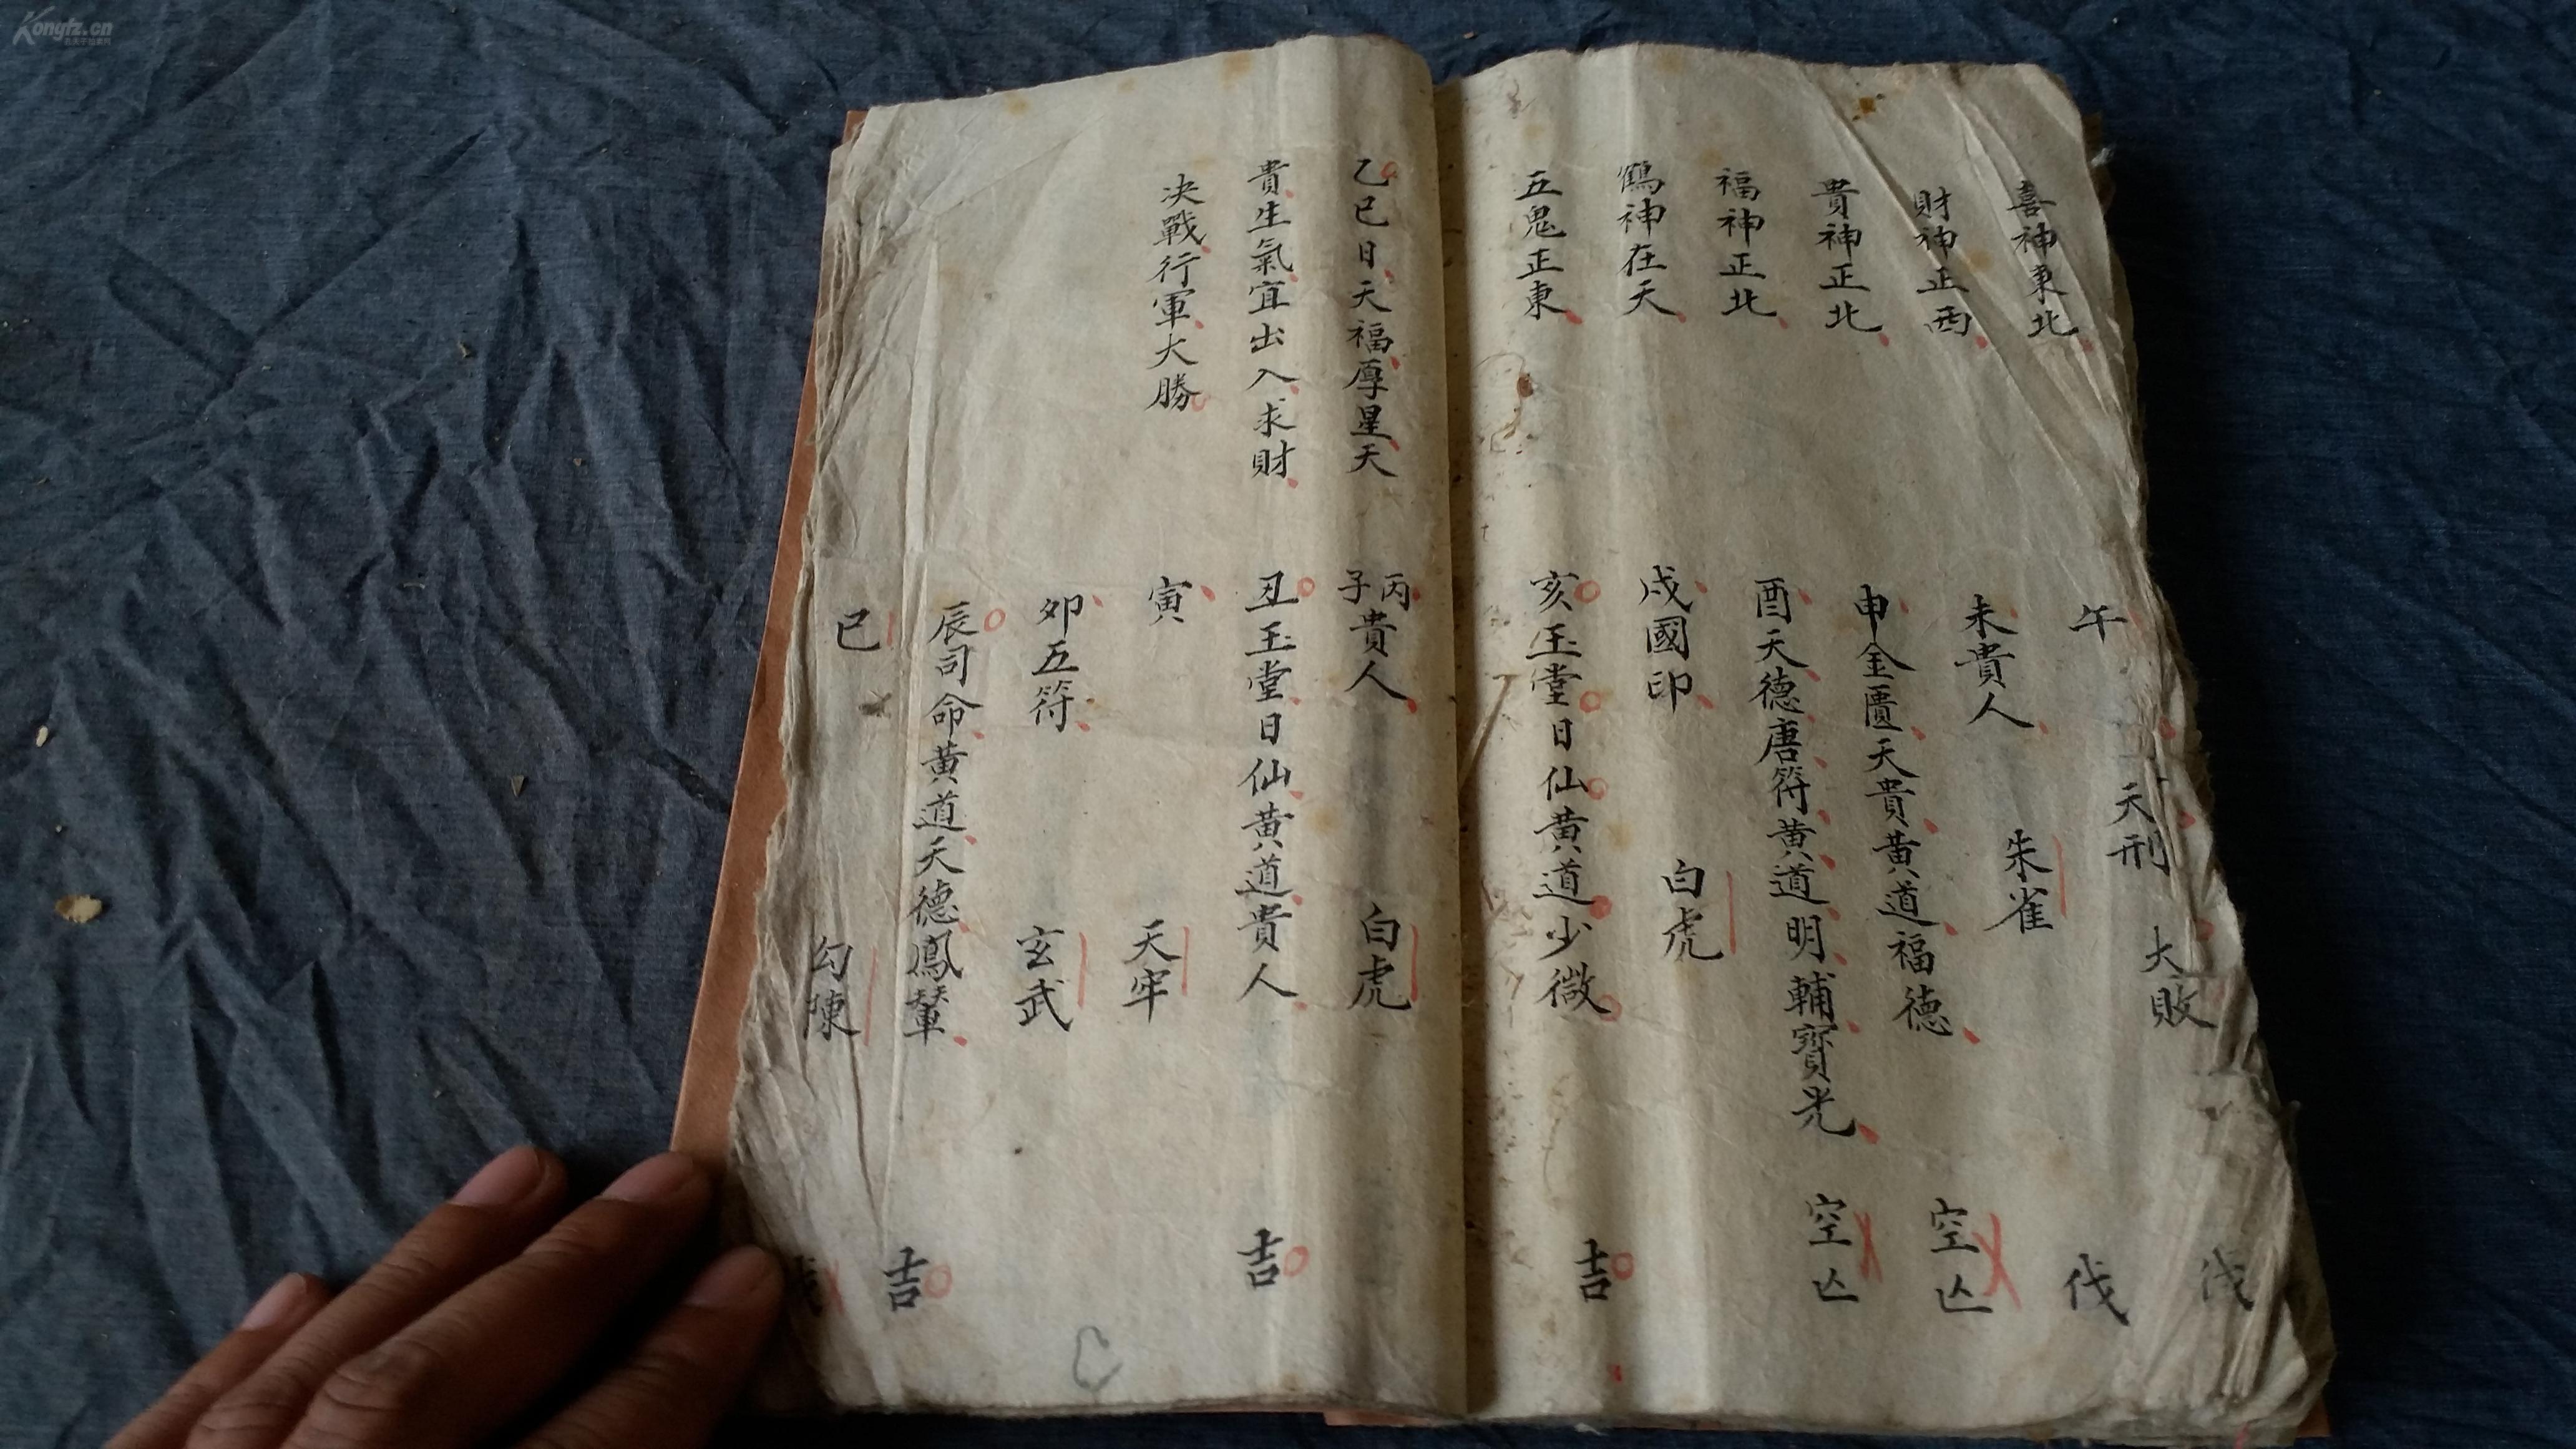 Kongfz.cn
喜神東北
財神正西
貴神正北
福神正北
鶴神在天
五鬼正東
大敗 伐
午 天刑 伐
未貴人 朱雀 空亡
申金匱天貴黃道福德 空亡
酉天德唐符黃道明輔寶光
戌國印 白虎
亥玉堂日仙黃道少微 吉
乙巳日天福厚星天
貴生氣宜出入求財
决戰行軍大勝
丙子貴人 白虎
丑玉堂日仙黃道貴人 吉
寅 天牢
卯五符 玄武
辰司命黃道天德鳳輦 吉
巳 勾陳